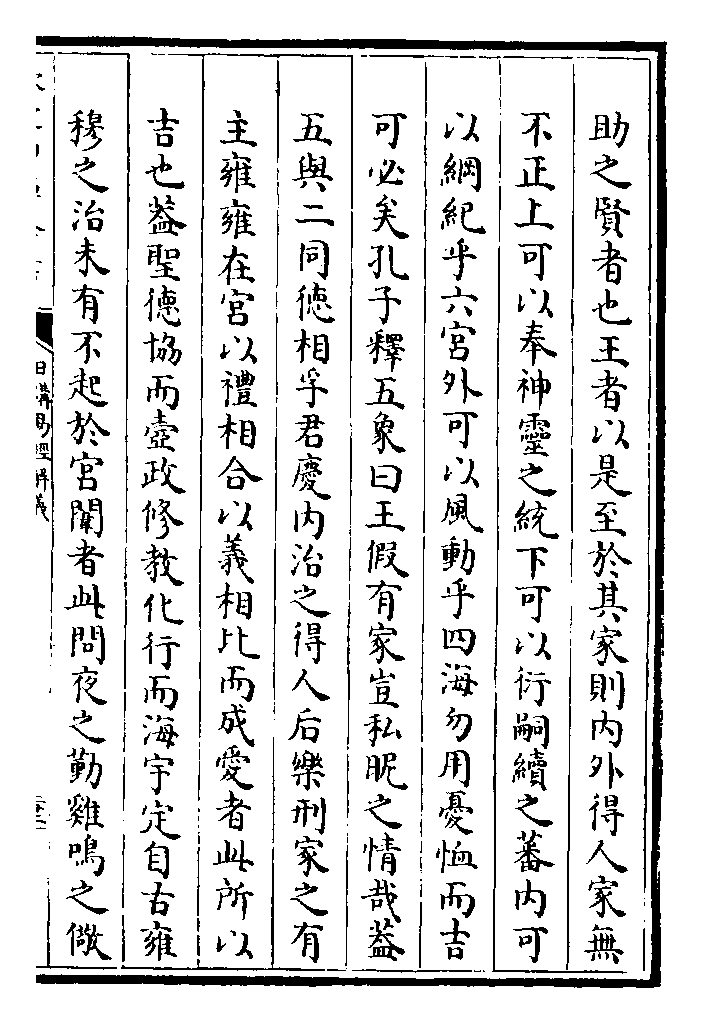 助之賢者也王者以是至於其家則内外得人家無
不正上可以奉神靈之統下可以衍嗣續之蕃内可
以綱紀乎六宫外可以風動乎四海勿用憂恤而吉
可必矣孔子釋五象曰王假有家豈私昵之情哉葢
五與二同徳相孚君慶内治之得人后樂刑家之有
主雍雍在宫以禮相合以義相比而成愛者此所以
吉也葢聖德協而壼政修教化行而海宇定自古雍
穆之治未有不起於宫闈者此問夜之勤雞鳴之儆
日講易經解義